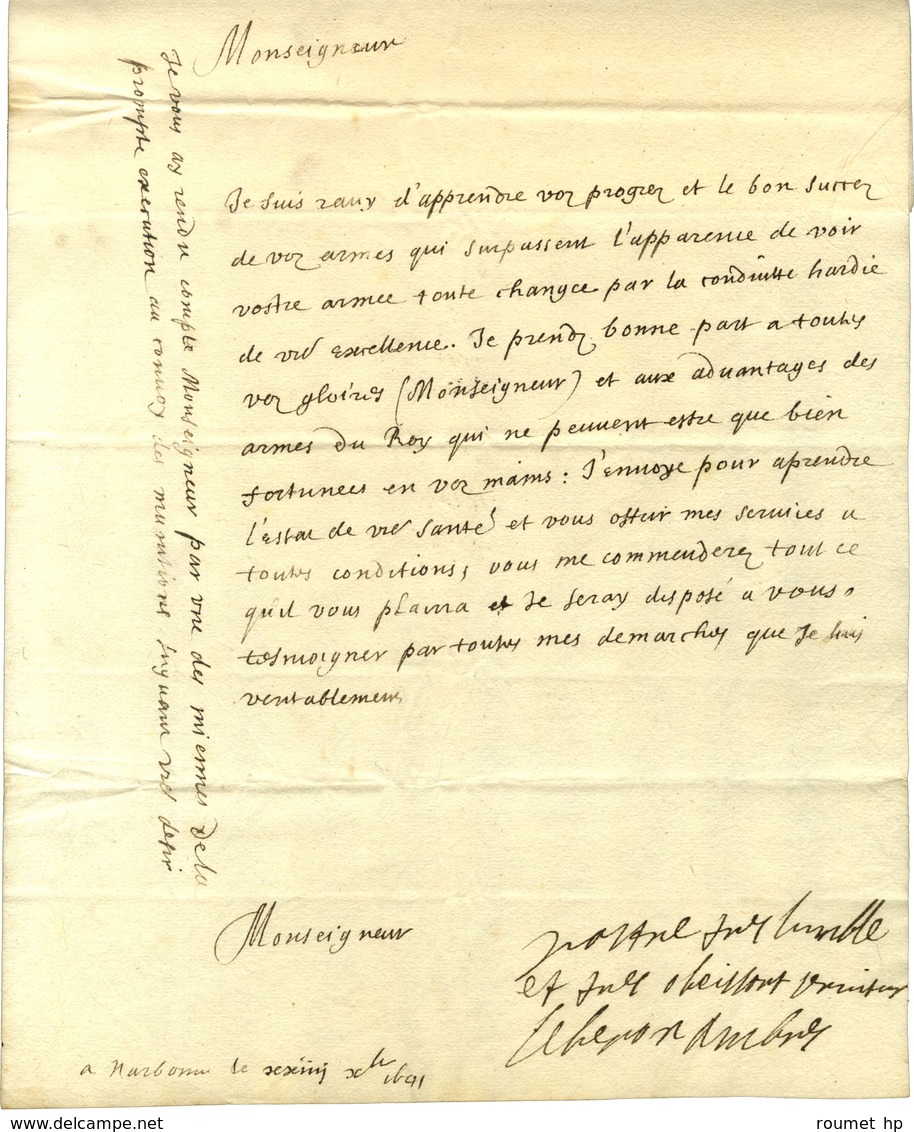 Monseigneur
Je suis ravy d'apprendre voz progrez et le bon succez
de voz armes qui surpassent l'apparence de voir
vostre armee toute changee par la conduitte hardie
de vre excellence. Je prendz bonne part a toutes
voz gloires (Monseigneur) et aux advantages des
armes du Roy qui ne peuvent estre que bien
fortunees en voz mains : J'envoye pour aprendre
l'estat de vre santé et vous offrir mes services a
toutes conditions, vous me commenderez tout ce
qu'il vous plaira et Je seray disposé a vous
tesmoigner par toutes mes demarches que Je suis
veritablement
Monseigneur
vostre tres humble
et tres obeissant serviteur
a Narbonne le xxiiij xbre 1641
Je vous ay rendu compte Monseigneur par une des miennes de la
prompte execution au convoy des munitions suyvant vre desir
roumet hp